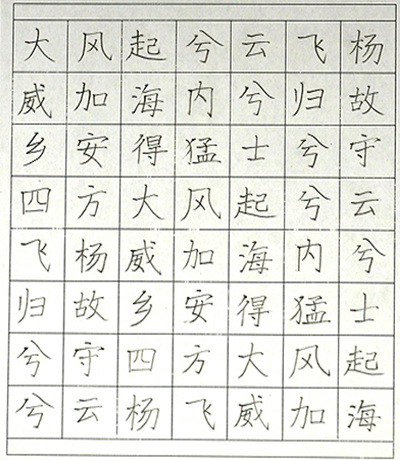 大风起兮云飞杨
威加海内兮归故
乡安得猛士兮守
四方大风起兮云
飞杨威加海内兮
归故乡安得猛士
兮守四方大风起
兮云杨飞威加海